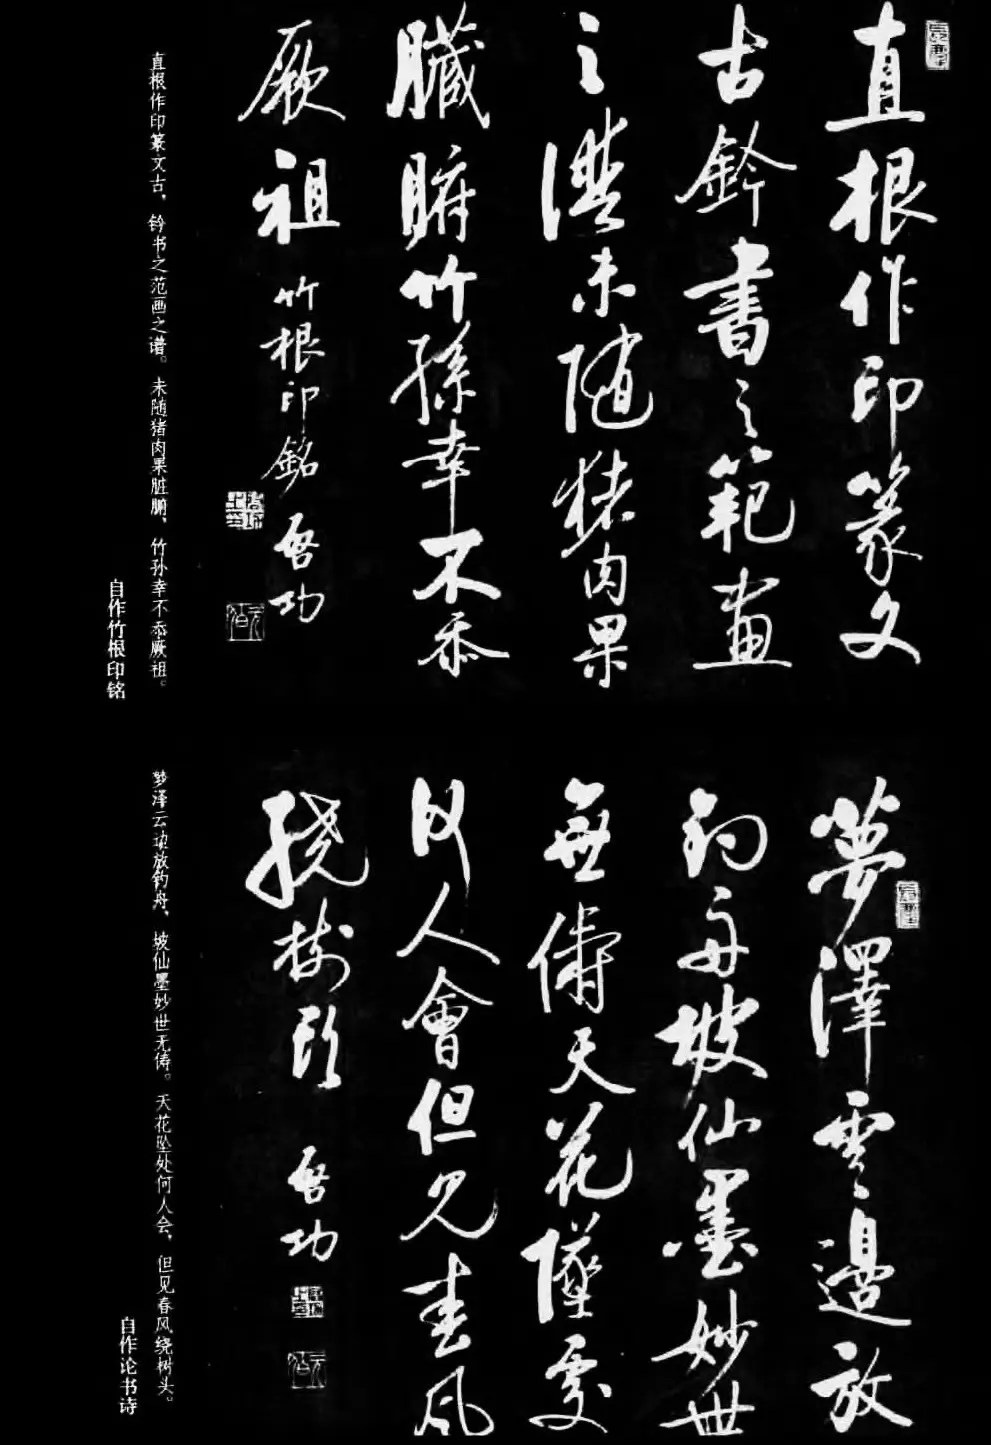 直根作印篆文
古鈐書之範畫
之譜未随猪肉果
臓腑竹孫幸不忝
厥祖
竹根印銘 啓功
直根作印篆文古、钤书之范画之谱。未随猪肉果脏腑、竹孙幸不忝厥祖。
自作竹根印铭
夢澤雲邊放
釣舟坡仙墨妙世
無儔天花墜處
何人會但見春風
繞樹頭
啓功
梦泽云边放钓舟、坡仙墨妙世无俦。天花坠处何人会，但见春风绕树头。
自作论书诗